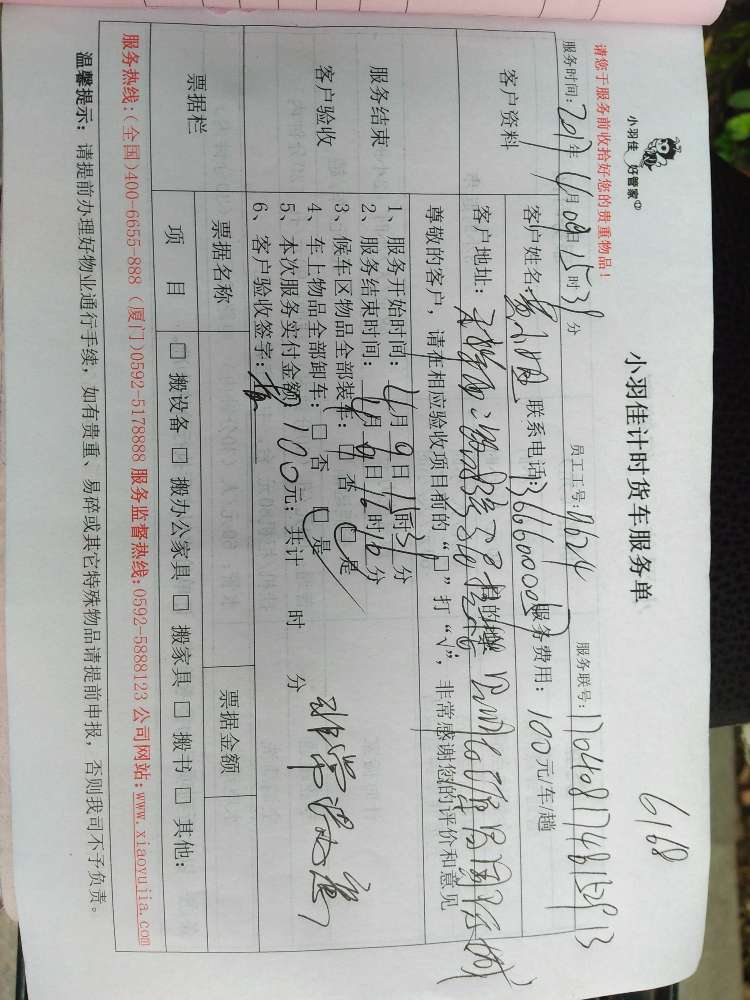 6168
小羽佳 好管家
小羽佳计时货车服务单
请您于服务前收拾好您的贵重物品！
服务时间：2017年4月09日15时31分 员工工号：7624 服务联号：
客户资料
客户姓名： 联系电话： 服务费用：100元/车/趟
客户地址：
尊敬的客户，请在相应验收项目前的“□”打“√”，非常感谢您的评价和意见
服务结束
客户验收
1、服务开始时间：4月9日15时31分
2、服务结束时间：4月9日16时10分
3、候车区物品全部装车：□否 □是
4、车上物品全部卸车：□否 □是
5、本次服务实付金额100元；共计 时 分
6、客户验收签字：
非常满意
票据栏
票据名称 票据金额
项 目 □ 搬设备 □ 搬办公家具 □ 搬家具 □ 搬书 □ 其他：
服务热线:(全国)400-6655-888 (厦门)0592-5178888 服务监督热线:0592-5888123 公司网站:www.xiaoyujia.com
温馨提示：请提前办理好物业通行手续，如有贵重、易碎或其它特殊物品请提前申报，否则我司不予负责。